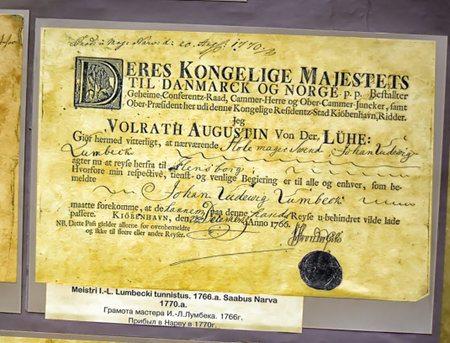 d. 20. Aug. 1770.
DERES KONGELIGE MAJESTETS
TIL DANMARCK OG NORGE p. p. Bestalter
Geheime-Conferentz-Raad, Cammer-Herre og Ober-Cammer-Juncker, samt
Ober-Præsident her udi denne Kongelige Residentz-Stad Kiöbenhavn, Ridder.
Jeg
VOLRATH AUGUSTIN Von Der LÜHE:
Giör hermed vitterligt, at nærværende Stole mager Svend Johan Ludwig
Lumbeck
agter nu at reyse herfra til Flensborg
Hvorfore min respectivè, tienst- og venlige Begiering er til alle og enhver, som be-
meldte
Johan Ludewig Lumbeck
maatte forekomme, at de hannem paa denne hands Reyse u-behindret vilde lade
passere. KIÖBENHAVN, den Anno 1766.
NB, Dette Pass gielder allene for ovenbemeldte
og ikke til fleere eller andre Reyser.
Meistri I.-L. Lumbecki tunnistus. 1766.a. Saabus Narva
1770.a.
Грамота мастера И.-Л.Лумбека. 1766г.
Прибыл в Нарву в 1770г.